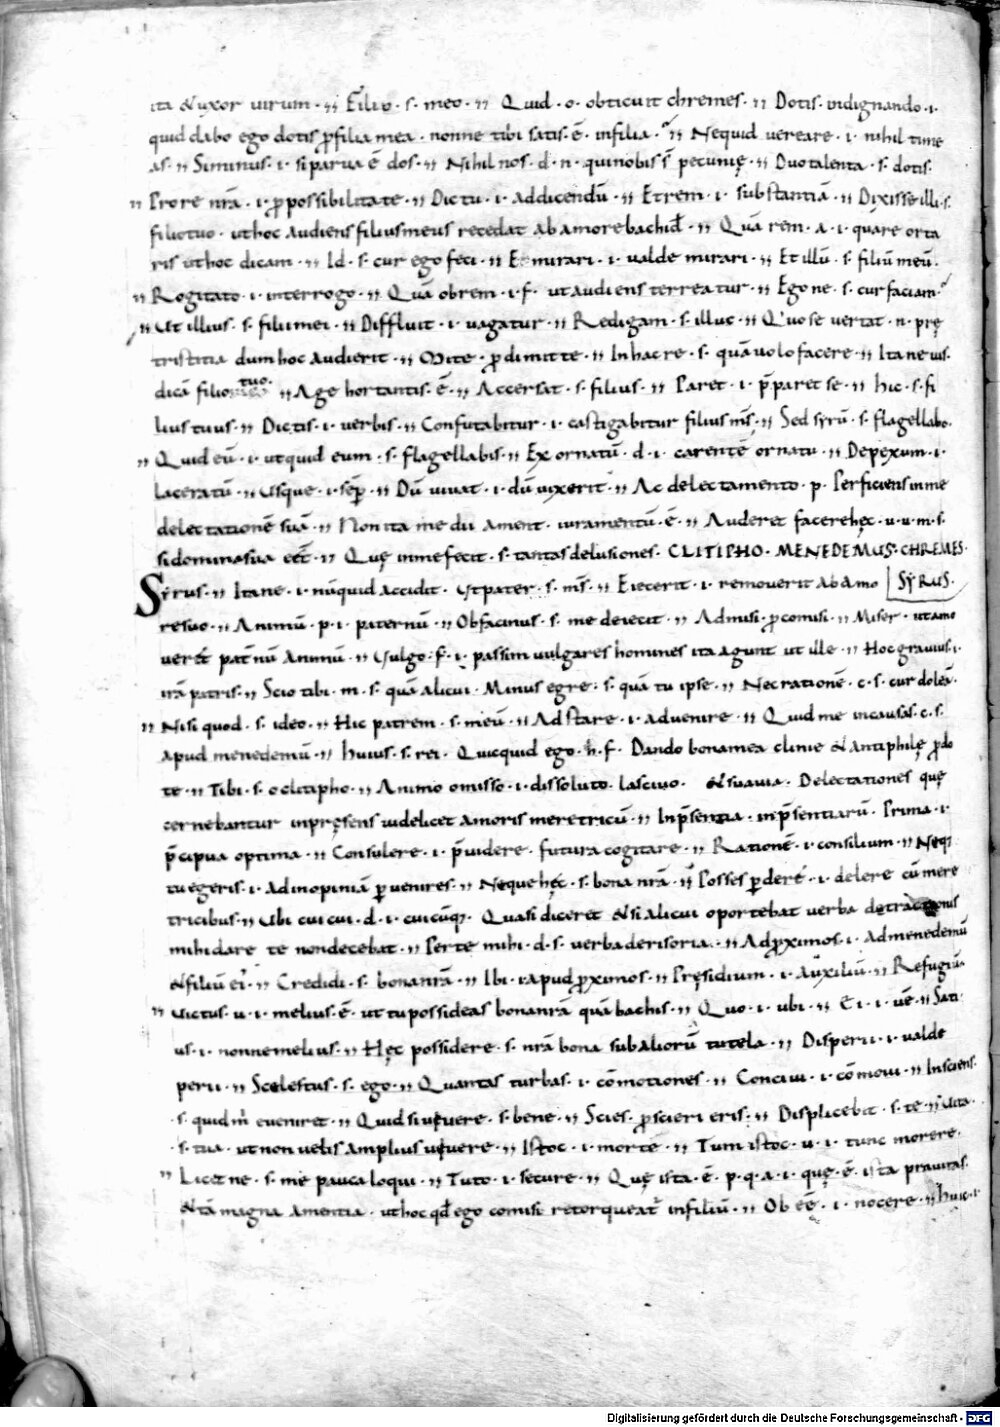 ita & uxor uirum · ⁊⁊ Filio · s · meo · ⁊⁊ Quid · o · obticuit chremes · ⁊⁊ Dotis · indignando · i ·
quid dabo ego dotis ꝓ filia mea · nonne tibi satis · ē · infilia · ⁊⁊ Nequid vereare · i · nihil time
as · ⁊⁊ Siminus · i · si parua ē dos · ⁊⁊ Nihil nos · d · n · qui nobis s̄ pecunię · ⁊⁊ Duo talenta · s · dotis ·
⁊⁊ Prore nr̄a · i · ꝓ possibilitate · ⁊⁊ Dictu · i · addicendū · ⁊⁊ Et rem · i · substantiā · ⁊⁊ Dixisse illi · s ·
filio tuo · ut hoc audiens filius meus recedat ab amore bachid · ⁊⁊ Quā rem · a · i · quare orta
ris ut hoc dicam · ⁊⁊ Id · s · cur ego feci · ⁊⁊ Et mirari · i · valde mirari · ⁊⁊ Et illū · s · filiū meū ·
⁊⁊ Rogitato · i · interrogo · ⁊⁊ Quā obrem · i · f · ut audiens terreatur · ⁊⁊ Egone · s · cur faciam ·
⁊⁊ Ut illius · s · filii mei · ⁊⁊ Diffluit · i · vagatur · ⁊⁊ Redigam · s · illuc · ⁊⁊ Quo se vertat · n · prę
tristitia dum hoc audierit · ⁊⁊ Mite · ꝓ dimitte · ⁊⁊ In hac re · s · quā uolo facere · ⁊⁊ Itane uis ·
dicā filio tuo · ⁊⁊ Age hortantis · ē · ⁊⁊ Accersat · s · filius · ⁊⁊ Paret · i · p̄paret se · ⁊⁊ hic · s · fi
lius tuus · ⁊⁊ Dictis · i · verbis · ⁊⁊ Confutabitur · i · castigabitur filius m̄s · ⁊⁊ Sed syrū · s · flagellabo ·
⁊⁊ Quid eū · i · ut quid eum · s · flagellabis · ⁊⁊ Ex ornatū · d · i · carentē ornatu · ⁊⁊ Depęxum · i ·
laceratū · ⁊⁊ Usque · i · sēp · ⁊⁊ Dū vivat · i · dū vixerit · ⁊⁊ Ac delectamento · p · Perficiens in me
delectationē suā · ⁊⁊ Non ita me dii ament · iuramentū · ē · ⁊⁊ Auderet facere hęc · u · u · m · s ·
si domina sua eēt · ⁊⁊ Quę in me fecit · s · tantas delusiones · CLITIPHO · MENEDEMUS · CHREMES ·
Syrus · ⁊⁊ Itane · i · nūquid accidit · Ut pater · s · m̄s · ⁊⁊ Eiecerit · i · removerit ab amo SYRUS ·
re suo · ⁊⁊ Animū · p · i · paternū · ⁊⁊ Ob facinus · s · me deiecit · ⁊⁊ Admisi · ꝓ comisi · ⁊⁊ Miser · ut amo
veret pat̄nū animū · ⁊⁊ Vulgo · f · i · passim uulgares homines ita agunt ut ille · ⁊⁊ Hoc gravius · i ·
irā patris · ⁊⁊ Scio tibi · m · s · quā alicui · Minus egre · s · quā tu ipse · ⁊⁊ Nec rationē · c · s · cur doleā ·
⁊⁊ Nisi quod · s · ideo · ⁊⁊ Hic patrem · s · meū · ⁊⁊ Adstare · i · advenire · ⁊⁊ Quid me incusas · c · s ·
apud menedemū · ⁊⁊ huius · s · rei · Quicquid ego · h · f · Dando bona mea clinie & antiphilę ꝓdo
te · ⁊⁊ Tibi · s · o clitipho · ⁊⁊ Animo omisso · i · dissoluto · lascivo · & suavia · Delectationes quę
cernebantur in pręsens uidelicet amoris meretricū · ⁊⁊ In p̄sentia · in p̄sentiarū · Prima · i ·
p̄cipua optima · ⁊⁊ Consulere · i · p̄uidere · futura cogitare · ⁊⁊ Rationē · i · consilium · ⁊⁊ Neq;
tu egeris · i · ad inopiniā ꝑvenires · ⁊⁊ Neque hęc · s · bona nr̄a · ⁊⁊ Posses ꝑdere · i · delere cū mere
tricibus · ⁊⁊ Ubi cui cui · d · i · cuicūq; · Quasi diceret & si alicui oportebat verba detractionis
mihi dare te non decebat · ⁊⁊ Per te mihi · d · s · verba derisoria · ⁊⁊ Ad ꝓximos · i · ad menedemū
& filiū ei · ⁊⁊ Credidi · s · bona nr̄a · ⁊⁊ Ibi · i · apud ꝓximos · ⁊⁊ Pręsidium · i · auxiliū · ⁊⁊ Refugiū ·
⁊⁊ Victus · u · i · melius · ē · ut tu possideas bona nr̄a quā bachis · ⁊⁊ Quo · i · ubi · ⁊⁊ Ei · i · uē · ⁊⁊ Sati
us · i · nonne melius · ⁊⁊ Hęc possidere · s · nr̄a bona sub aliorū tutela · ⁊⁊ Disperii · i · valde
perii · ⁊⁊ Scelestus · s · ego · ⁊⁊ Quantas turbas · i · cōmotiones · ⁊⁊ Concivi · i · cōmovi · ⁊⁊ Insciens ·
· s · quid m̄ eveniret · ⁊⁊ Quid si uivere · s · bene · ⁊⁊ Scies · ꝓ scieri eris · ⁊⁊ Displicebit · s · te · ⁊⁊ Uita ·
· s · tua · ut non velis amplius uivere · ⁊⁊ Istoc · i · morte · ⁊⁊ Tum istoc · u · i · tunc morere ·
⁊⁊ Licetne · s · me pauca loqui · ⁊⁊ Tuto · i · secure · ⁊⁊ Quę ista · ē · p · q · a · i · quę · ē · ista pravitas ·
& tā magna amentia · ut hoc qd̄ ego comisi retorqueat̄ in filiū · ⁊⁊ Ob eē · i · nocere · ⁊⁊ huic · i ·
Digitalisierung gefördert durch die Deutsche Forschungsgemeinschaft - DFG